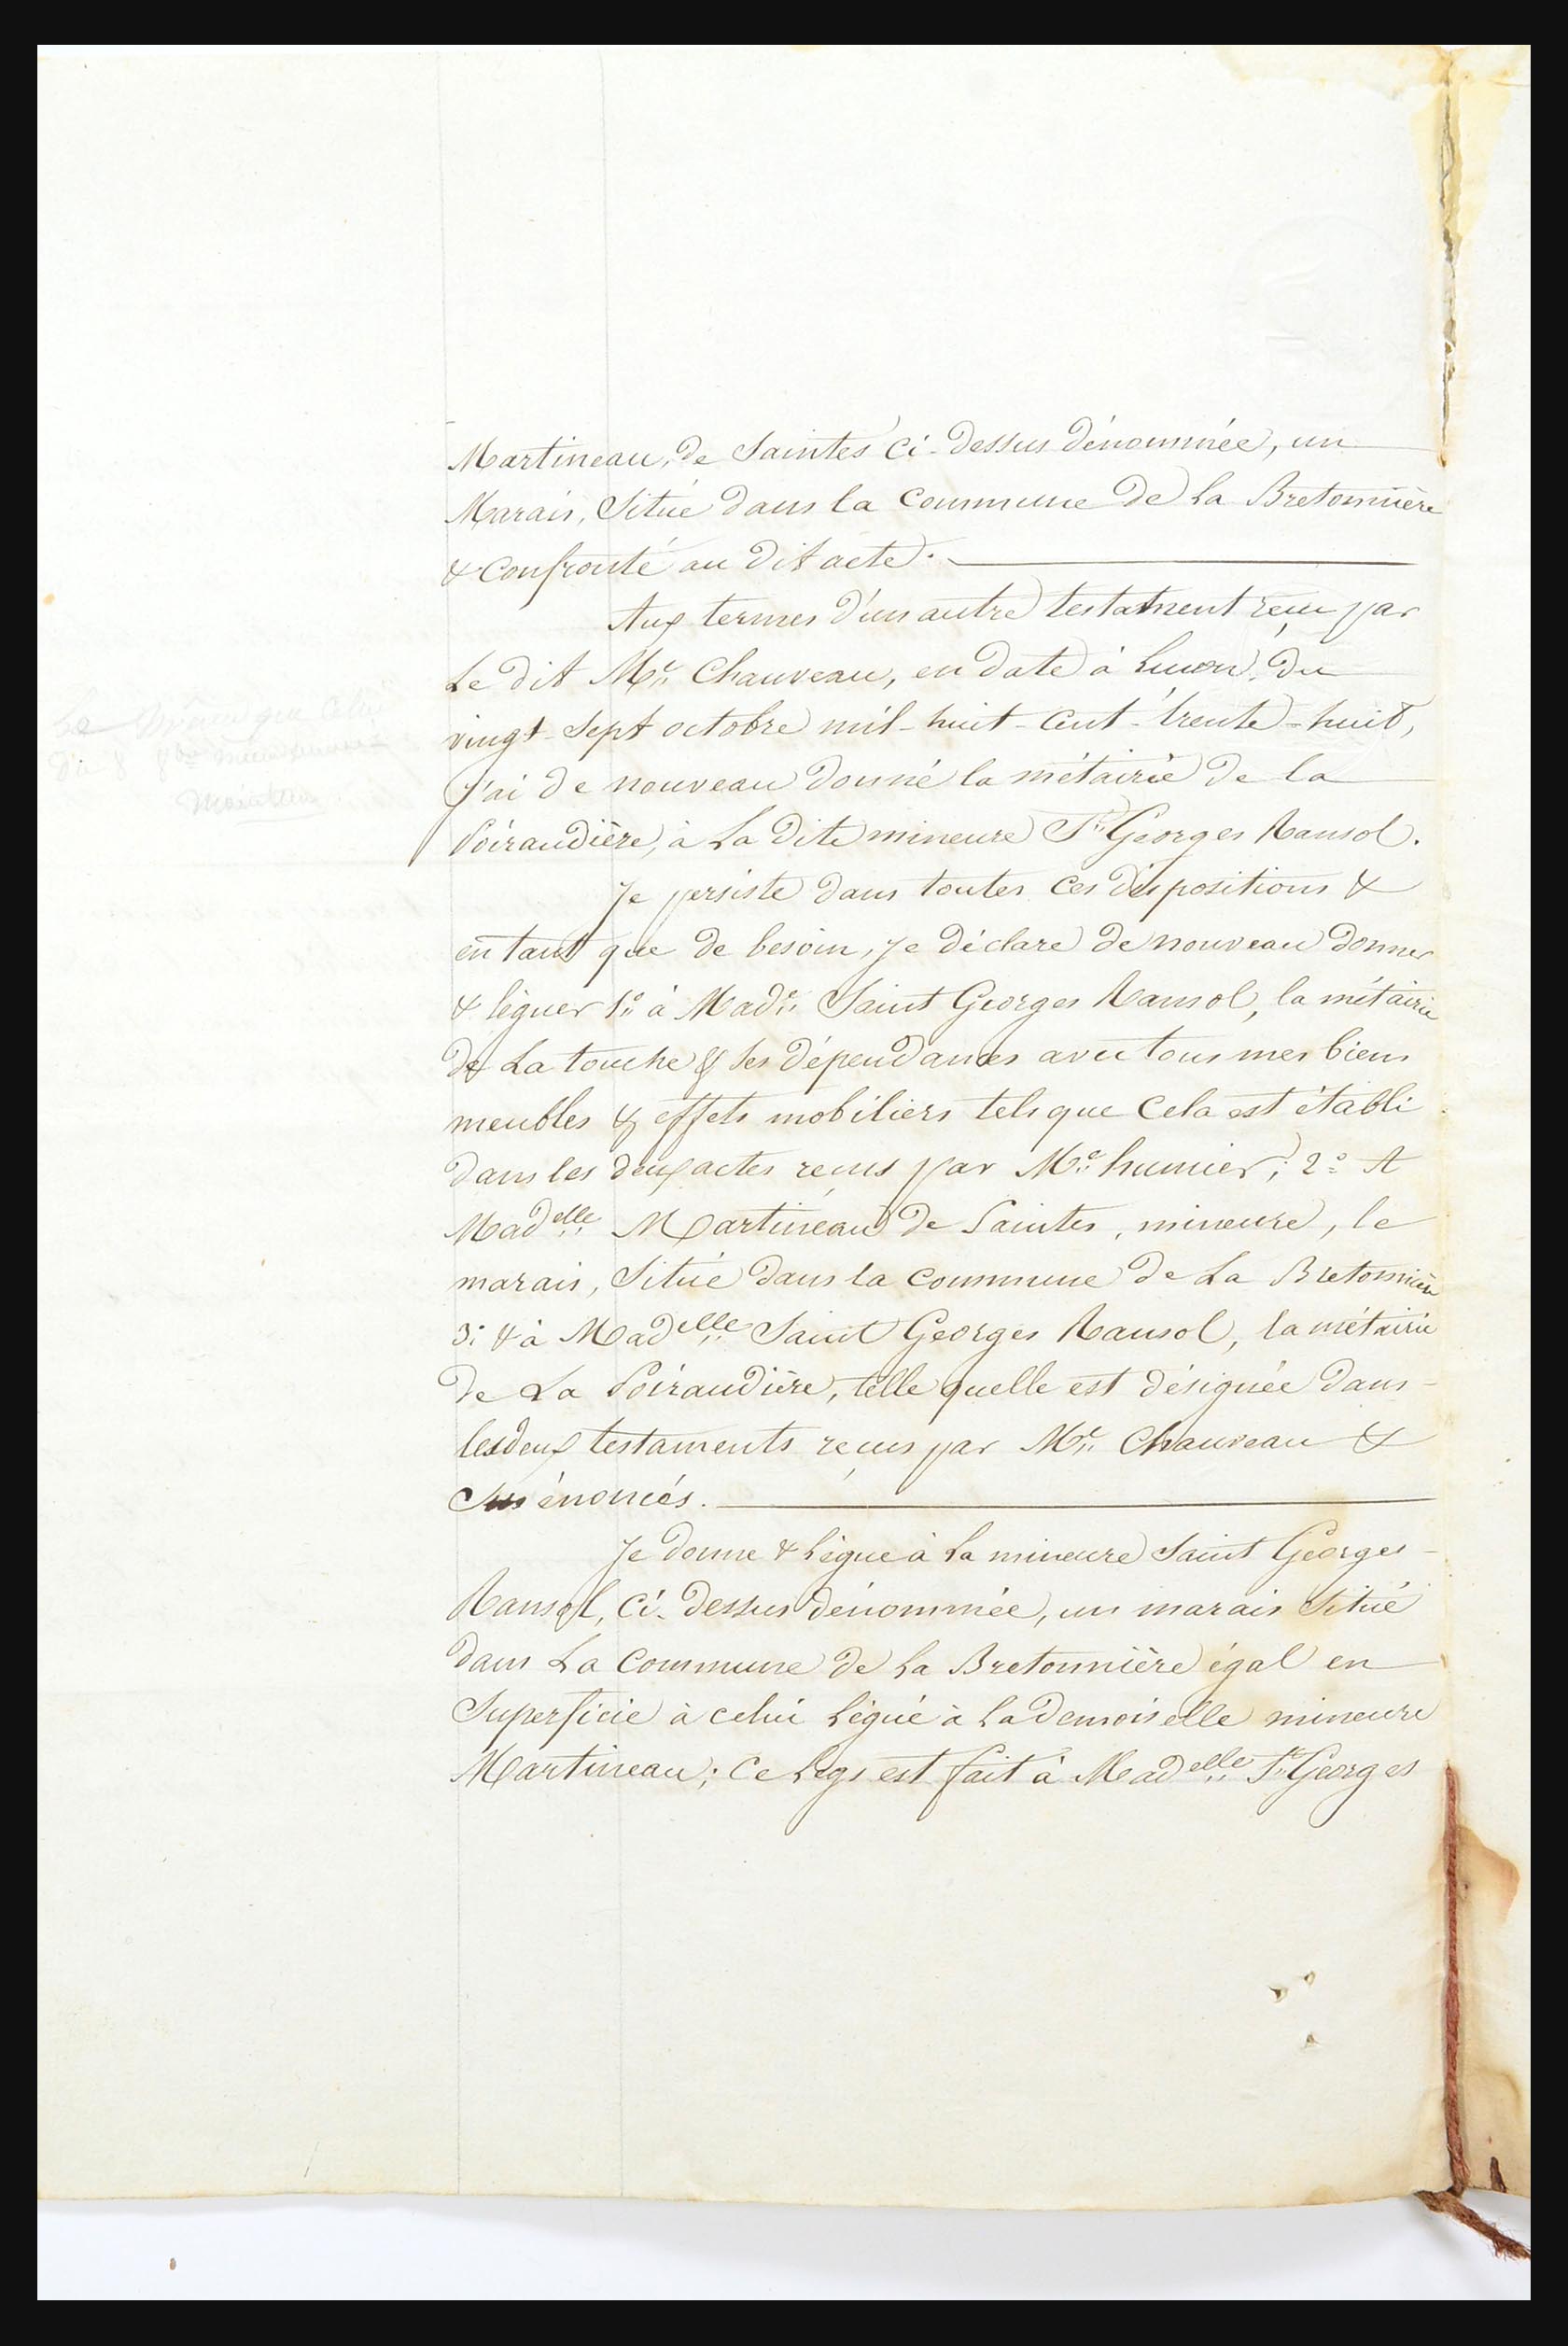 Martineau, de Saintes ci-dessus dénommée, un
Marais, Situé dans la commune de la Bretonnière
& confronté au dit acte.
Aux termes d'un autre testament reçu par
Le dit Me. Chauveau, en date à Luçon, du
vingt-sept octobre mil-huit-cent-trente-huit,
j'ai de nouveau donné la métairie de la
Poiraudière, à La dite mineure St. Georges Ransol.
Je persiste dans toutes ces dispositions &
en tant que de besoin, je déclare de nouveau donner
& léguer 1o. à Made. Saint Georges Ransol, la métairie
de La touche & ses dépendances avec tous mes biens
meubles & effets mobiliers tels que cela est établi
dans les deux actes reçus par Me. humier; 2o. A
Madelle. Martineau de Saintes, mineure, le
marais, Situé dans la commune de La Bretonnière
3o. & à Madelle. Saint Georges Ransol, la métairie
de La Poiraudière, telle quelle est désignée dans
les deux testaments reçus par Me. Chauveau &
Sus énoncés.
Je donne & Lègue à La mineure Saint Georges
Ransol, ci-dessus dénommée, un marais Situé
dans La commune de La Bretonnière égal en
Superficie à celui Légué à La demoiselle mineure
Martineau; ce Legs est fait à Madelle. St. Georges